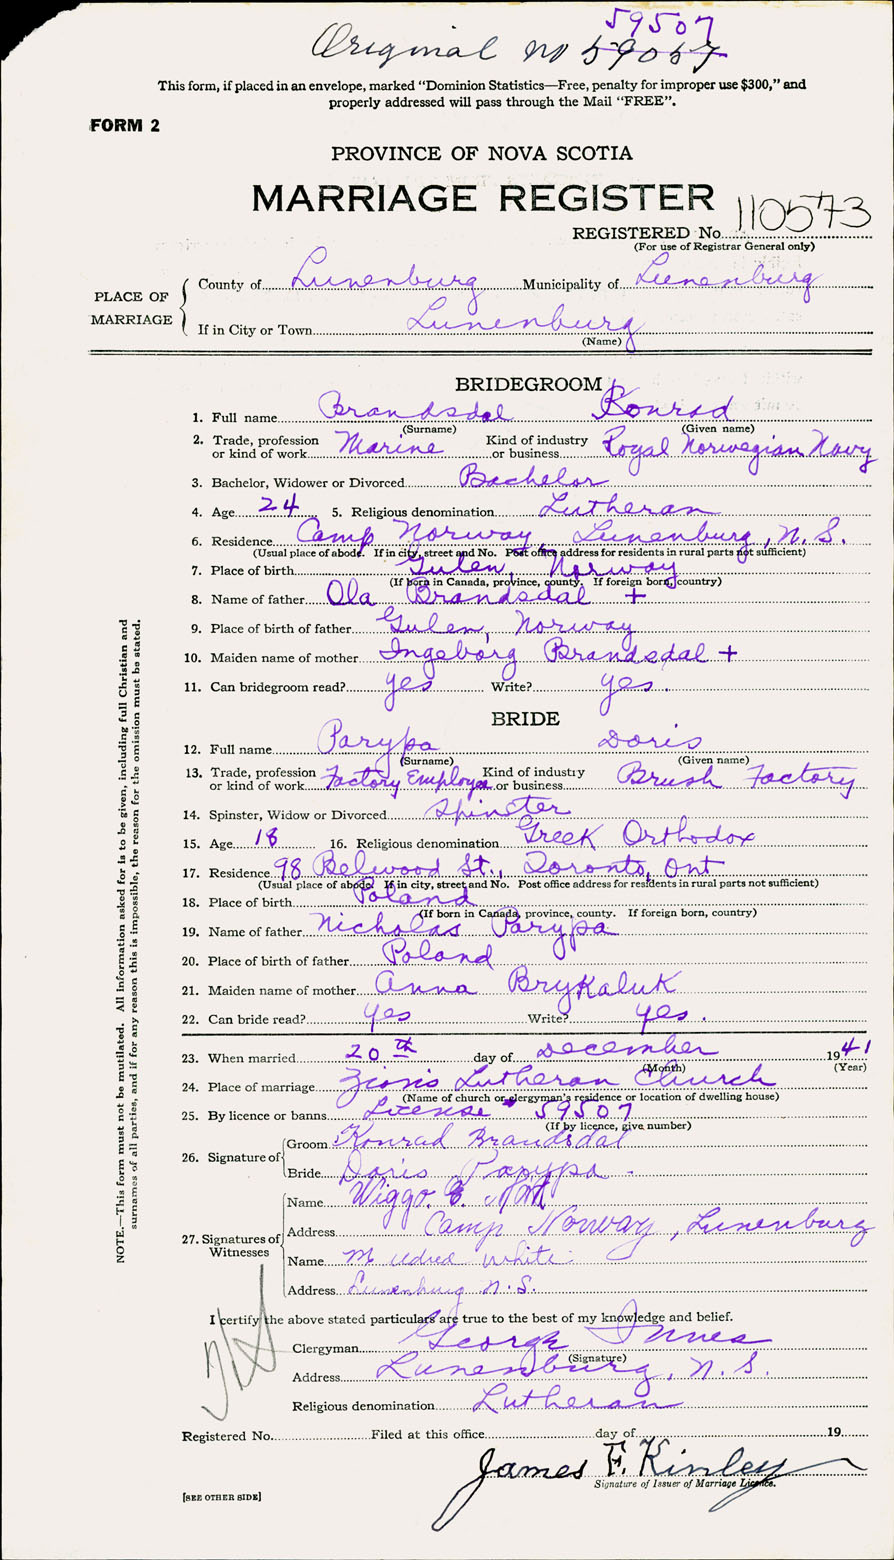 59507
Original no 59057
This form, if placed in an envelope, marked "Dominion Statistics—Free, penalty for improper use $300," and
properly addressed will pass through the Mail "FREE".
FORM 2
PROVINCE OF NOVA SCOTIA
MARRIAGE REGISTER
REGISTERED No. 110573
(For use of Registrar General only)
PLACE OF MARRIAGE
County of Lunenburg Municipality of Lunenburg
If in City or Town Lunenburg
(Name)
BRIDEGROOM
1. Full name Brandsdal Konrad
(Surname) (Given name)
2. Trade, profession or kind of work Marine Kind of industry or business Royal Norwegian Navy
3. Bachelor, Widower or Divorced Bachelor
4. Age 24 5. Religious denomination Lutheran
6. Residence Camp Norway, Lunenburg, N.S.
(Usual place of abode. If in city, street and No. Post office address for residents in rural parts not sufficient)
7. Place of birth Gulen, Norway
(If born in Canada, province, county. If foreign born, country)
8. Name of father Ola Brandsdal +
9. Place of birth of father Gulen, Norway
10. Maiden name of mother Ingeborg Brandsdal +
11. Can bridegroom read? yes Write? yes.
BRIDE
12. Full name Parypa Doris
(Surname) (Given name)
13. Trade, profession or kind of work Factory Employee Kind of industry or business Brush Factory
14. Spinster, Widow or Divorced Spinster
15. Age 18 16. Religious denomination Greek Orthodox
17. Residence 98 Belwood St., Toronto, Ont
(Usual place of abode. If in city, street and No. Post office address for residents in rural parts not sufficient)
18. Place of birth Poland
(If born in Canada, province, county. If foreign born, country)
19. Name of father Nicholas Parypa
20. Place of birth of father Poland
21. Maiden name of mother Anna Brykaluk
22. Can bride read? yes Write? yes.
23. When married 20th day of December 1941
(Month) (Year)
24. Place of marriage Zion's Lutheran Church
(Name of church or clergyman's residence or location of dwelling house)
25. By licence or banns License 59507
(If by licence, give number)
26. Signature of
Groom Konrad Brandsdal
Bride Doris Parypa
27. Signatures of Witnesses
Name Wiggo. E.
Address Camp Norway, Lunenburg
Name Mildred White
Address Lunenburg N.S.
I certify the above stated particulars are true to the best of my knowledge and belief.
Clergyman George Innes
(Signature)
Address Lunenburg, N.S.
Religious denomination Lutheran
Registered No. Filed at this office day of 19
James F. Kinley
Signature of Issuer of Marriage Licence.
[SEE OTHER SIDE]
NOTE.—This form must not be mutilated. All information asked for is to be given, including full Christian and
surnames of all parties, and if for any reason this is impossible, the reason for the omission must be stated.